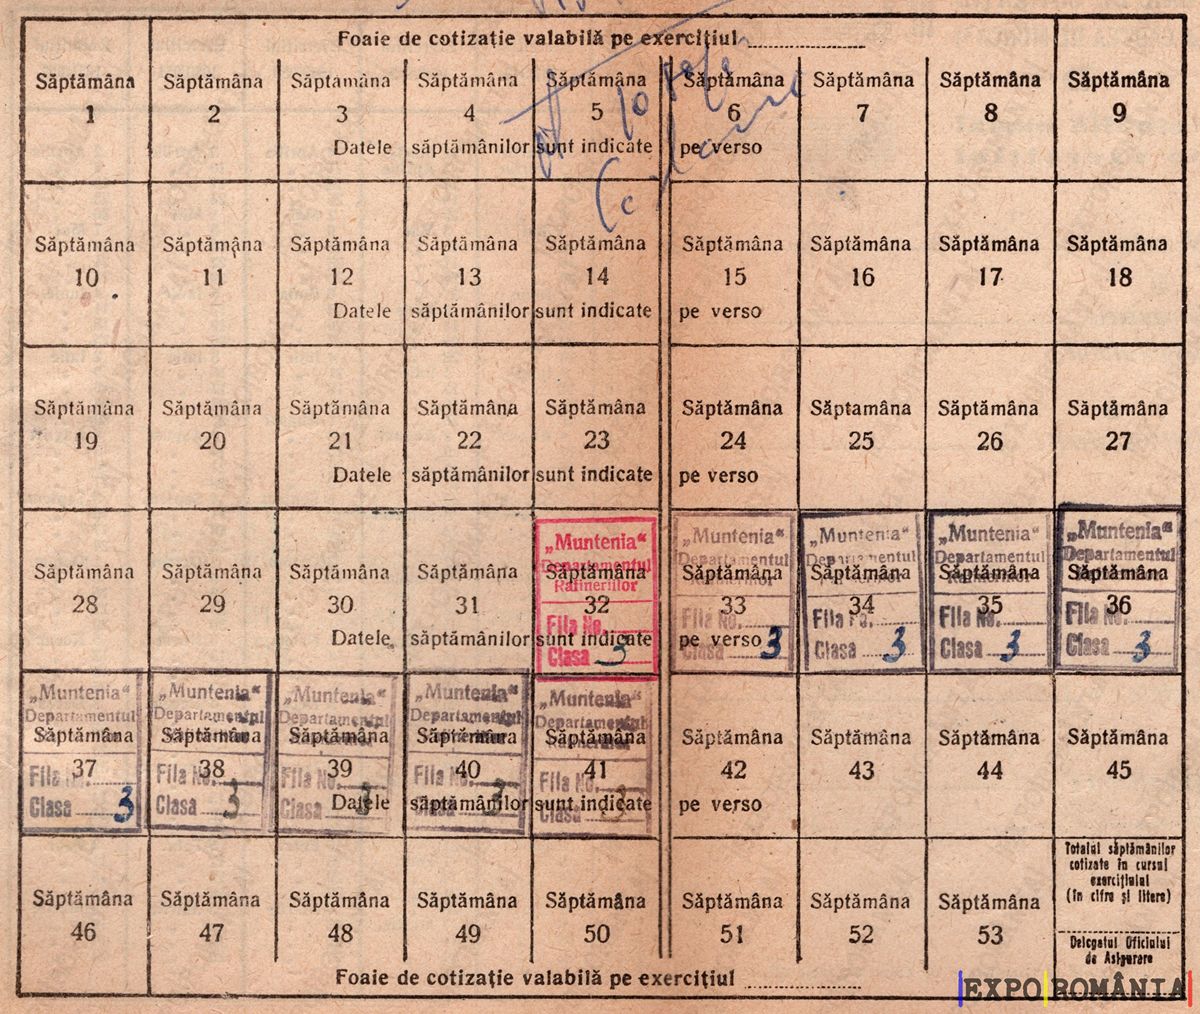 Foaie de cotizație valabilă pe exercițiul
Săptămâna Săptămâna Săptămâna Săptămâna Săptămâna Săptămâna Săptămâna Săptămâna Săptămâna
1 2 3 4 5 6 7 8 9
Datele săptămânilor sunt indicate pe verso
Săptămâna Săptămâna Săptămâna Săptămâna Săptămâna Săptămâna Săptămâna Săptămâna Săptămâna
10 11 12 13 14 15 16 17 18
Datele săptămânilor sunt indicate pe verso
Săptămâna Săptămâna Săptămâna Săptămâna Săptămâna Săptămâna Săptamâna Săptămâna Săptămâna
19 20 21 22 23 24 25 26 27
Datele săptămânilor sunt indicate pe verso
„Muntenia“ „Muntenia“ „Muntenia“ „Muntenia“ „Muntenia“
Departamentul Departamentul Departamentul Departamentul Departamentul
Săptămâna Săptămâna Săptămâna Săptămâna Săptămâna Săptămâna Săptămâna Săptămâna Săptămâna
Rafineriilor
28 29 30 31 32 33 34 35 36
Fila No. Fila No. Fila No. Fila No. Fila No.
Datele săptămânilor sunt indicate pe verso
Clasa 3 Clasa 3 Clasa 3 Clasa 3 Clasa 3
„Muntenia“ „Muntenia“ „Muntenia“ „Muntenia“ „Muntenia“
Departamentul Departamentul Departamentul Departamentul Departamentul
Săptămâna Săptămâna Săptămâna Săptămâna Săptămâna Săptămâna Săptămâna Săptămâna Săptămâna
37 38 39 40 41 42 43 44 45
Fila No. Fila No. Fila No. Fila No. Fila No.
Datele săptămânilor sunt indicate pe verso
Clasa 3 Clasa 3 Clasa 3 Clasa 3 Clasa 3
Săptămâna Săptămâna Săptămâna Săptămâna Săptămâna Săptămâna Săptămâna Săptămâna
46 47 48 49 50 51 52 53
Totalul săptămânilor
cotizate în cursul
exercițiului
(în cifre și litere)
Delegatul Oficiului
de Asigurare
Foaie de cotizație valabilă pe exercițiul
EXPO ROMÂNIA